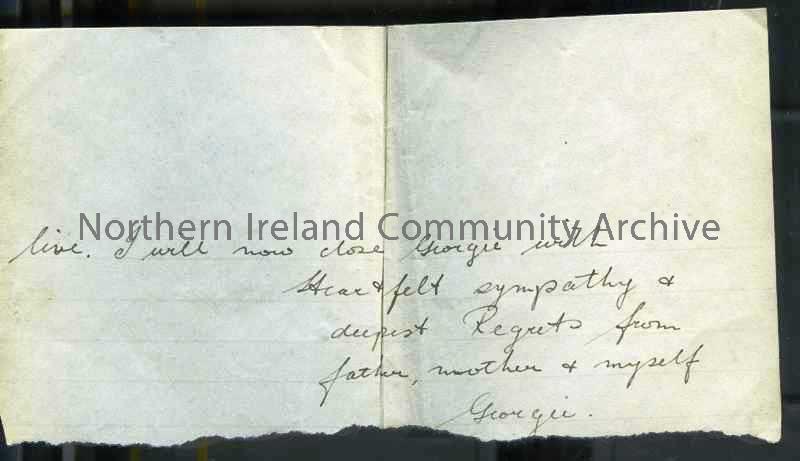 Northern Ireland Community Archive
live. I will now close Georgie with
Heartfelt sympathy &
deepest Regrets from
father, mother & myself
Georgie.